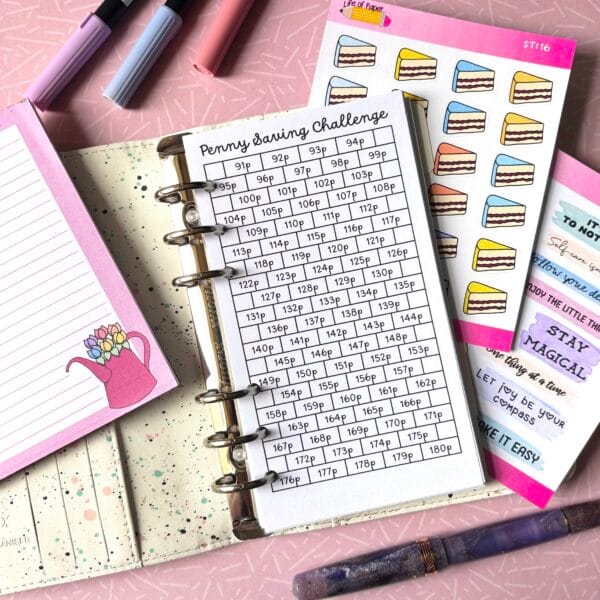 Life of Paper
STI16
Penny Saving Challenge
91p 92p 93p 94p
95p 96p 97p 98p 99p
100p 101p 102p 103p
104p 105p 106p 107p 108p
109p 110p 111p 112p
113p 114p 115p 116p 117p
118p 119p 120p 121p
122p 123p 124p 125p 126p
127p 128p 129p 130p
131p 132p 133p 134p 135p
136p 137p 138p 139p
140p 141p 142p 143p 144p
145p 146p 147p 148p
149p 150p 151p 152p 153p
154p 155p 156p 157p
158p 159p 160p 161p 162p
163p 164p 165p 166p
167p 168p 169p 170p 171p
172p 173p 174p 175p
176p 177p 178p 179p 180p
TO NOT
Self-care
follow your
ENJOY THE LITTLE
STAY
MAGICAL
one thing at a time
LET joy BE YOUR
COMPASS
TAKE IT EASY